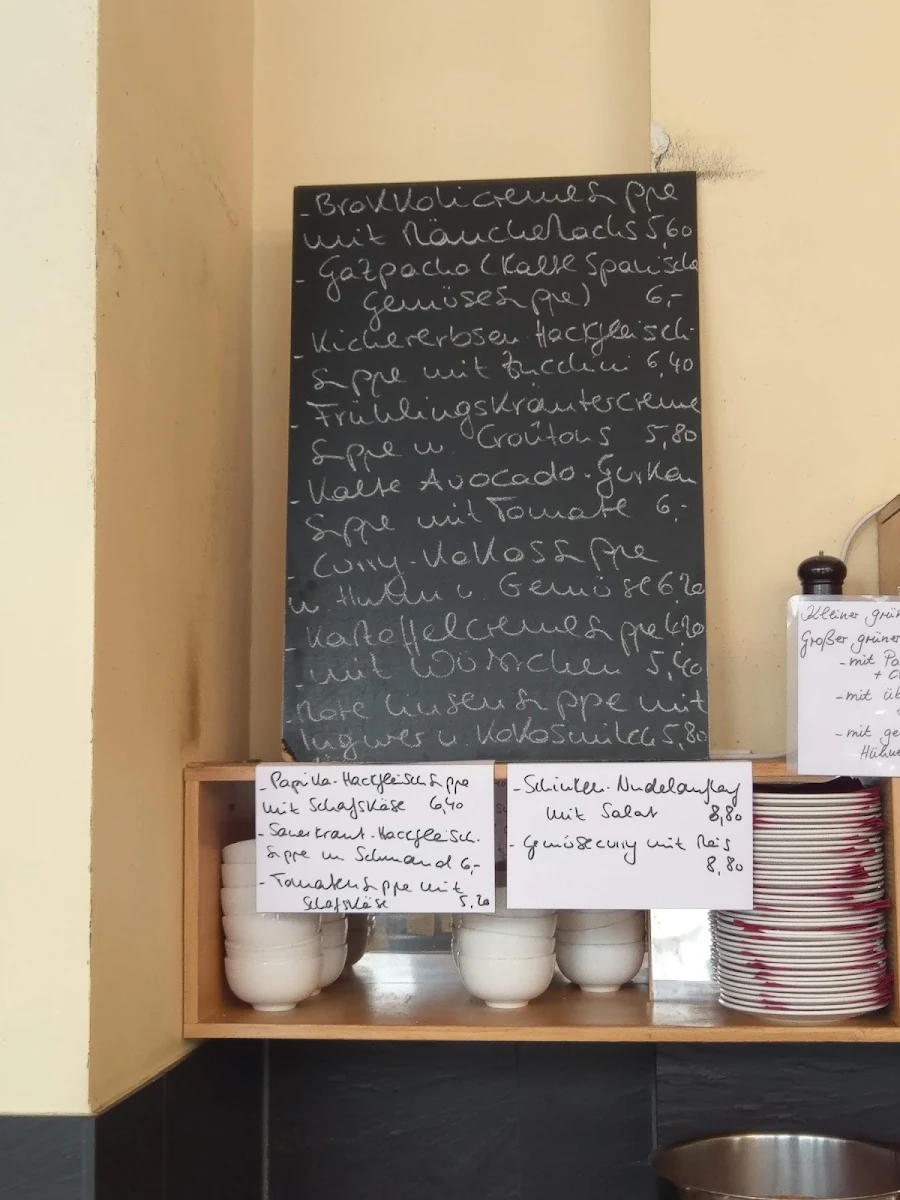 - Brokkolicremesuppe
mit Räucherlachs 5,60
- Gazpacho (Kalte Spanische
Gemüsesuppe) 6,-
- Kichererbsen Hackfleisch-
Suppe mit Zucchini 6,40
- Frühlingskräutercreme
Suppe m. Croûtons 5,80
- Kalte Avocado-Gurken
Suppe mit Tomate 6,-
- Curry-Kokossuppe
m. Huhn u. Gemüse 6,20
- Kartoffelcremesuppe 4,20
- mit Würstchen 5,40
- Rote Linsensuppe mit
Ingwer u. Kokosmilch 5,80
- Paprika-Hackfleischsuppe
mit Schafskäse 6,40
- Sauerkraut-Hackfleisch-
Suppe m Schmand 6,-
- Tomatensuppe mit
Schafskäse 5,20
- Schinken-Nudelauflauf
mit Salat 8,80
- Gemüsecurry mit Reis
8,80
Kleiner grün
Großer grüner
- mit Pa
+ O
- mit üb
- mit ge
Hühne